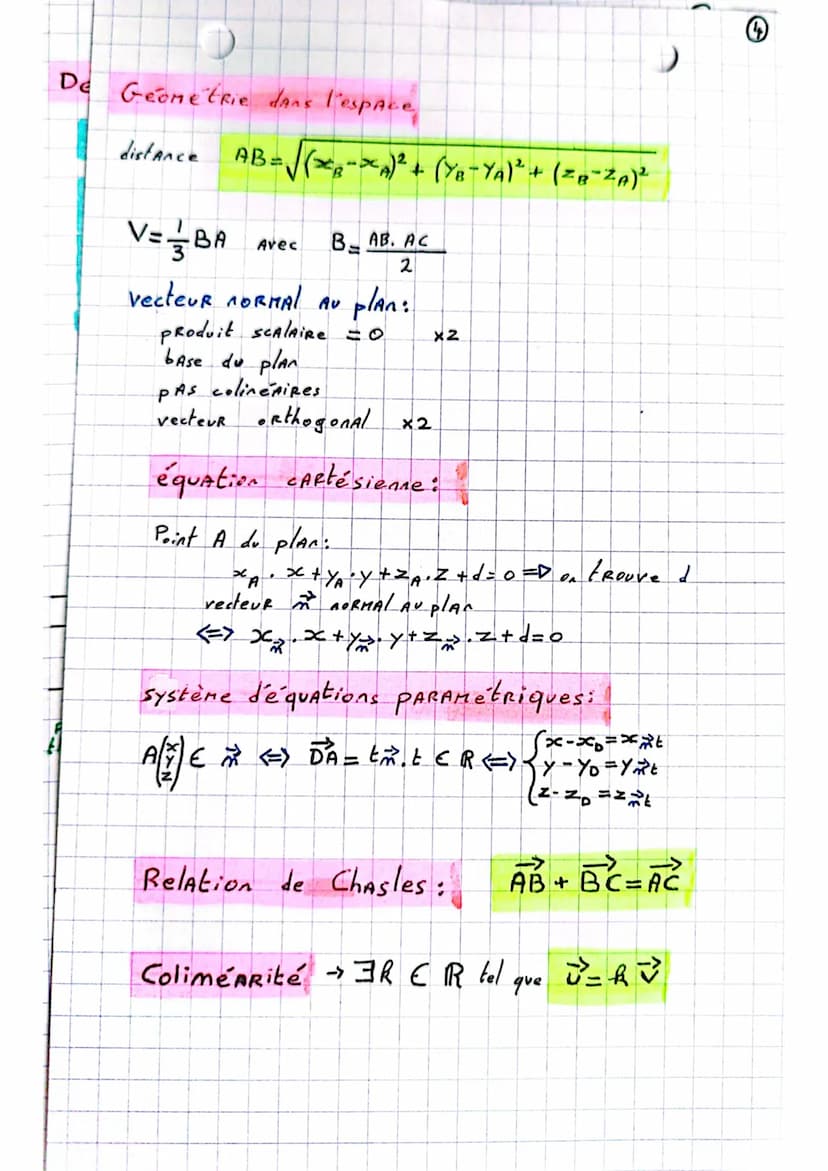 ④
De
Géométrie dans l'espace
distance AB=√(x_B-x_A)² + (y_B-y_A)² + (z_B-z_A)²
V=1/3 BA avec B= AB. AC / 2
vecteur normal au plan:
produit scalaire = 0 x2
base du plan
pas colinéaires
vecteur orthogonal x2
équation cartésienne:
Point A du plan:
x_A . x + y_A . y + z_A . z + d = 0 => on trouve d
vecteur n⃗ normal au plan
<=> x_n⃗ . x + y_n⃗ . y + z_n⃗ . z + d = 0
système d'équations paramétriques:
A(x y z) ∈ n⃗ <=> DA⃗ = t n⃗ . t ∈ R <=> { x - x_D = x_n⃗ t
y - y_D = y_n⃗ t
z - z_D = z_n⃗ t
Relation de Chasles : AB⃗ + BC⃗ = AC⃗
Coliméarité → ∃k ∈ ℝ tel que u⃗ = k v⃗